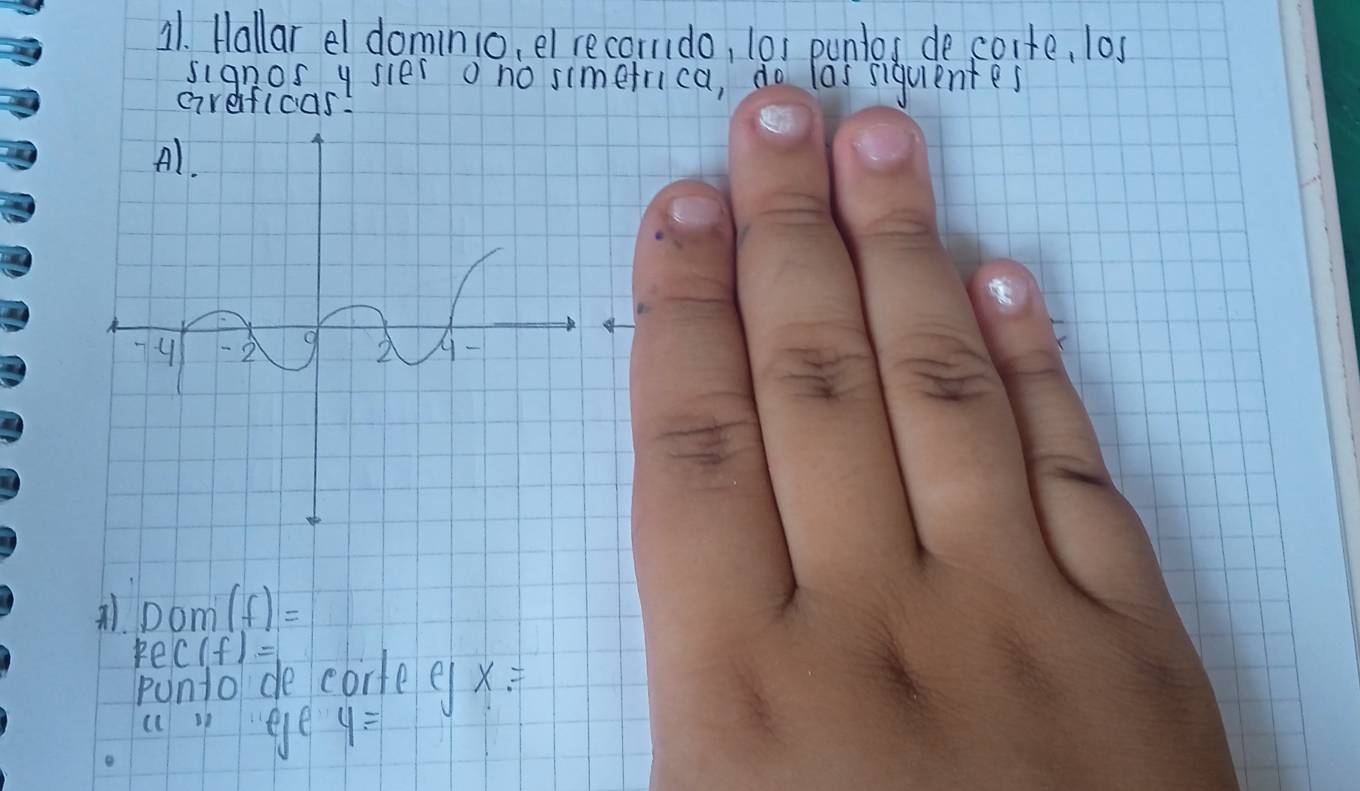 1). Hallar el dominio, el recorrido, los puntos de corte, los
signos y sies o no simetrica, de las siguientes
Graficas:
A).
-4 -2 0 2 4 -
1). Dom(f)=
Rec(f)=
Punto de corte ej x =
" " eje y =